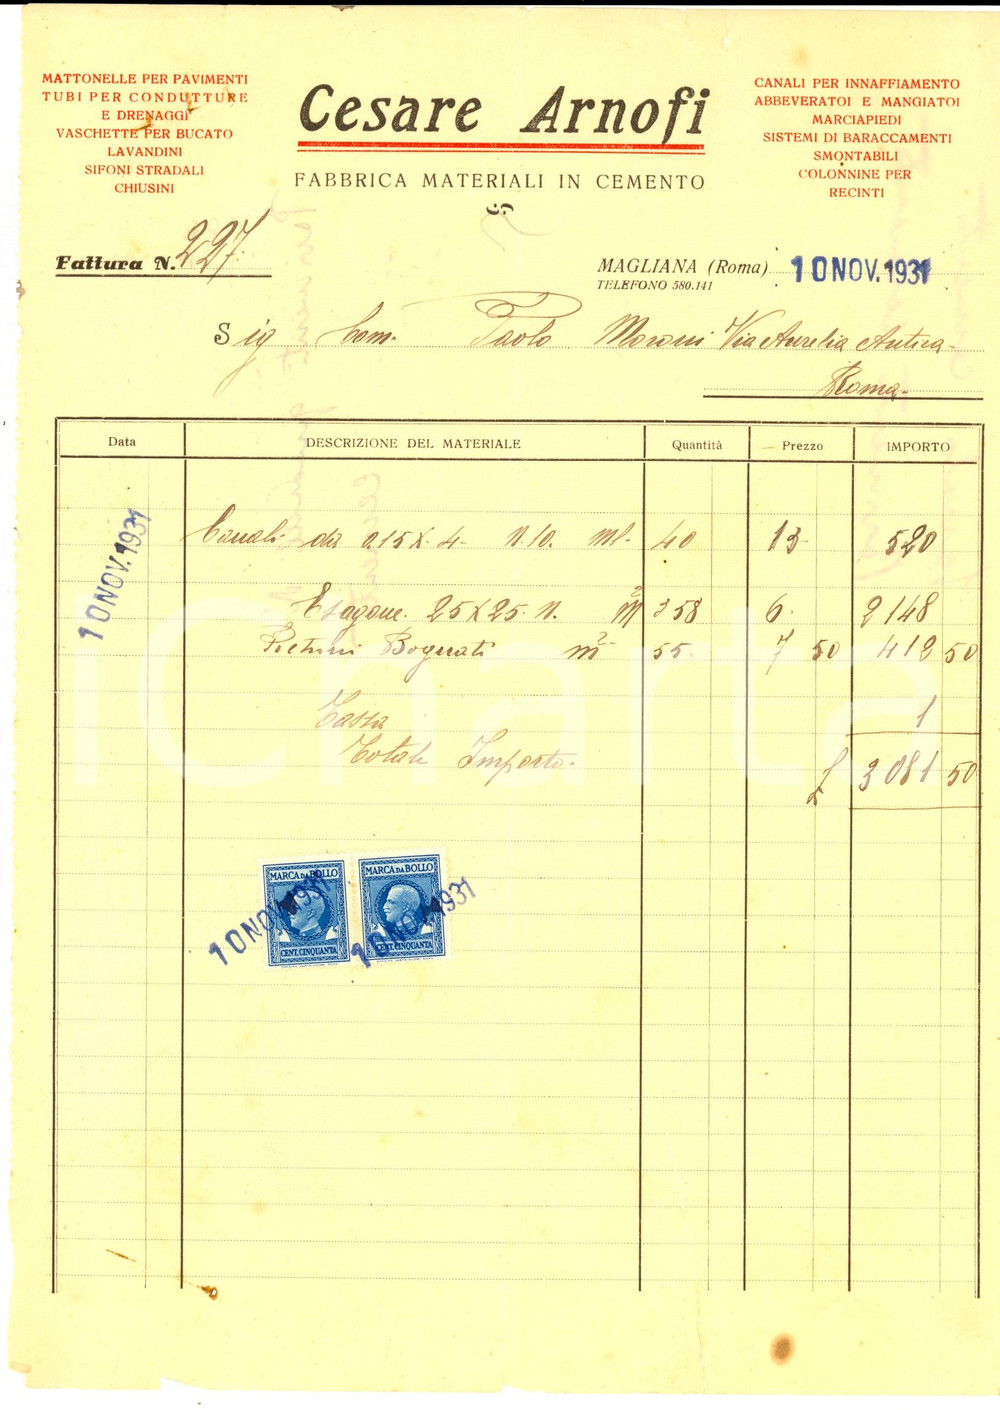 MATTONELLE PER PAVIMENTI
TUBI PER CONDUTTURE
E DRENAGGI
VASCHETTE PER BUCATO
LAVANDINI
SIFONI STRADALI
CHIUSINI
Cesare Arnofi
FABBRICA MATERIALI IN CEMENTO
CANALI PER INNAFFIAMENTO
ABBEVERATOI E MANGIATOI
MARCIAPIEDI
SISTEMI DI BARACCAMENTI
SMONTABILI
COLONNINE PER
RECINTI
Fattura N. 227.
MAGLIANA (Roma) 10 NOV. 1931
TELEFONO 580.141
Sig Com. Paolo Moroni Via Aurelia Antica
Roma
Data DESCRIZIONE DEL MATERIALE Quantità Prezzo IMPORTO
10 NOV. 1931
Canali da 0.15 X 4 N. 10. Ml. 40 13 520
Esagone 25X25 N. M2 358 6 2148
Pietrini Bognati m2 55 7 50 412 50
Tassa 1
Totale Importo £ 3081 50
MARCA DA BOLLO
CENT. CINQUANTA
10 NOV. 1931
MARCA DA BOLLO
CENT. CINQUANTA
10 NOV. 1931
iCharta